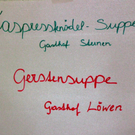 Kaspressknödel-Suppe
Gasthof Sternen
Gerstensuppe
Gasthof Löwen